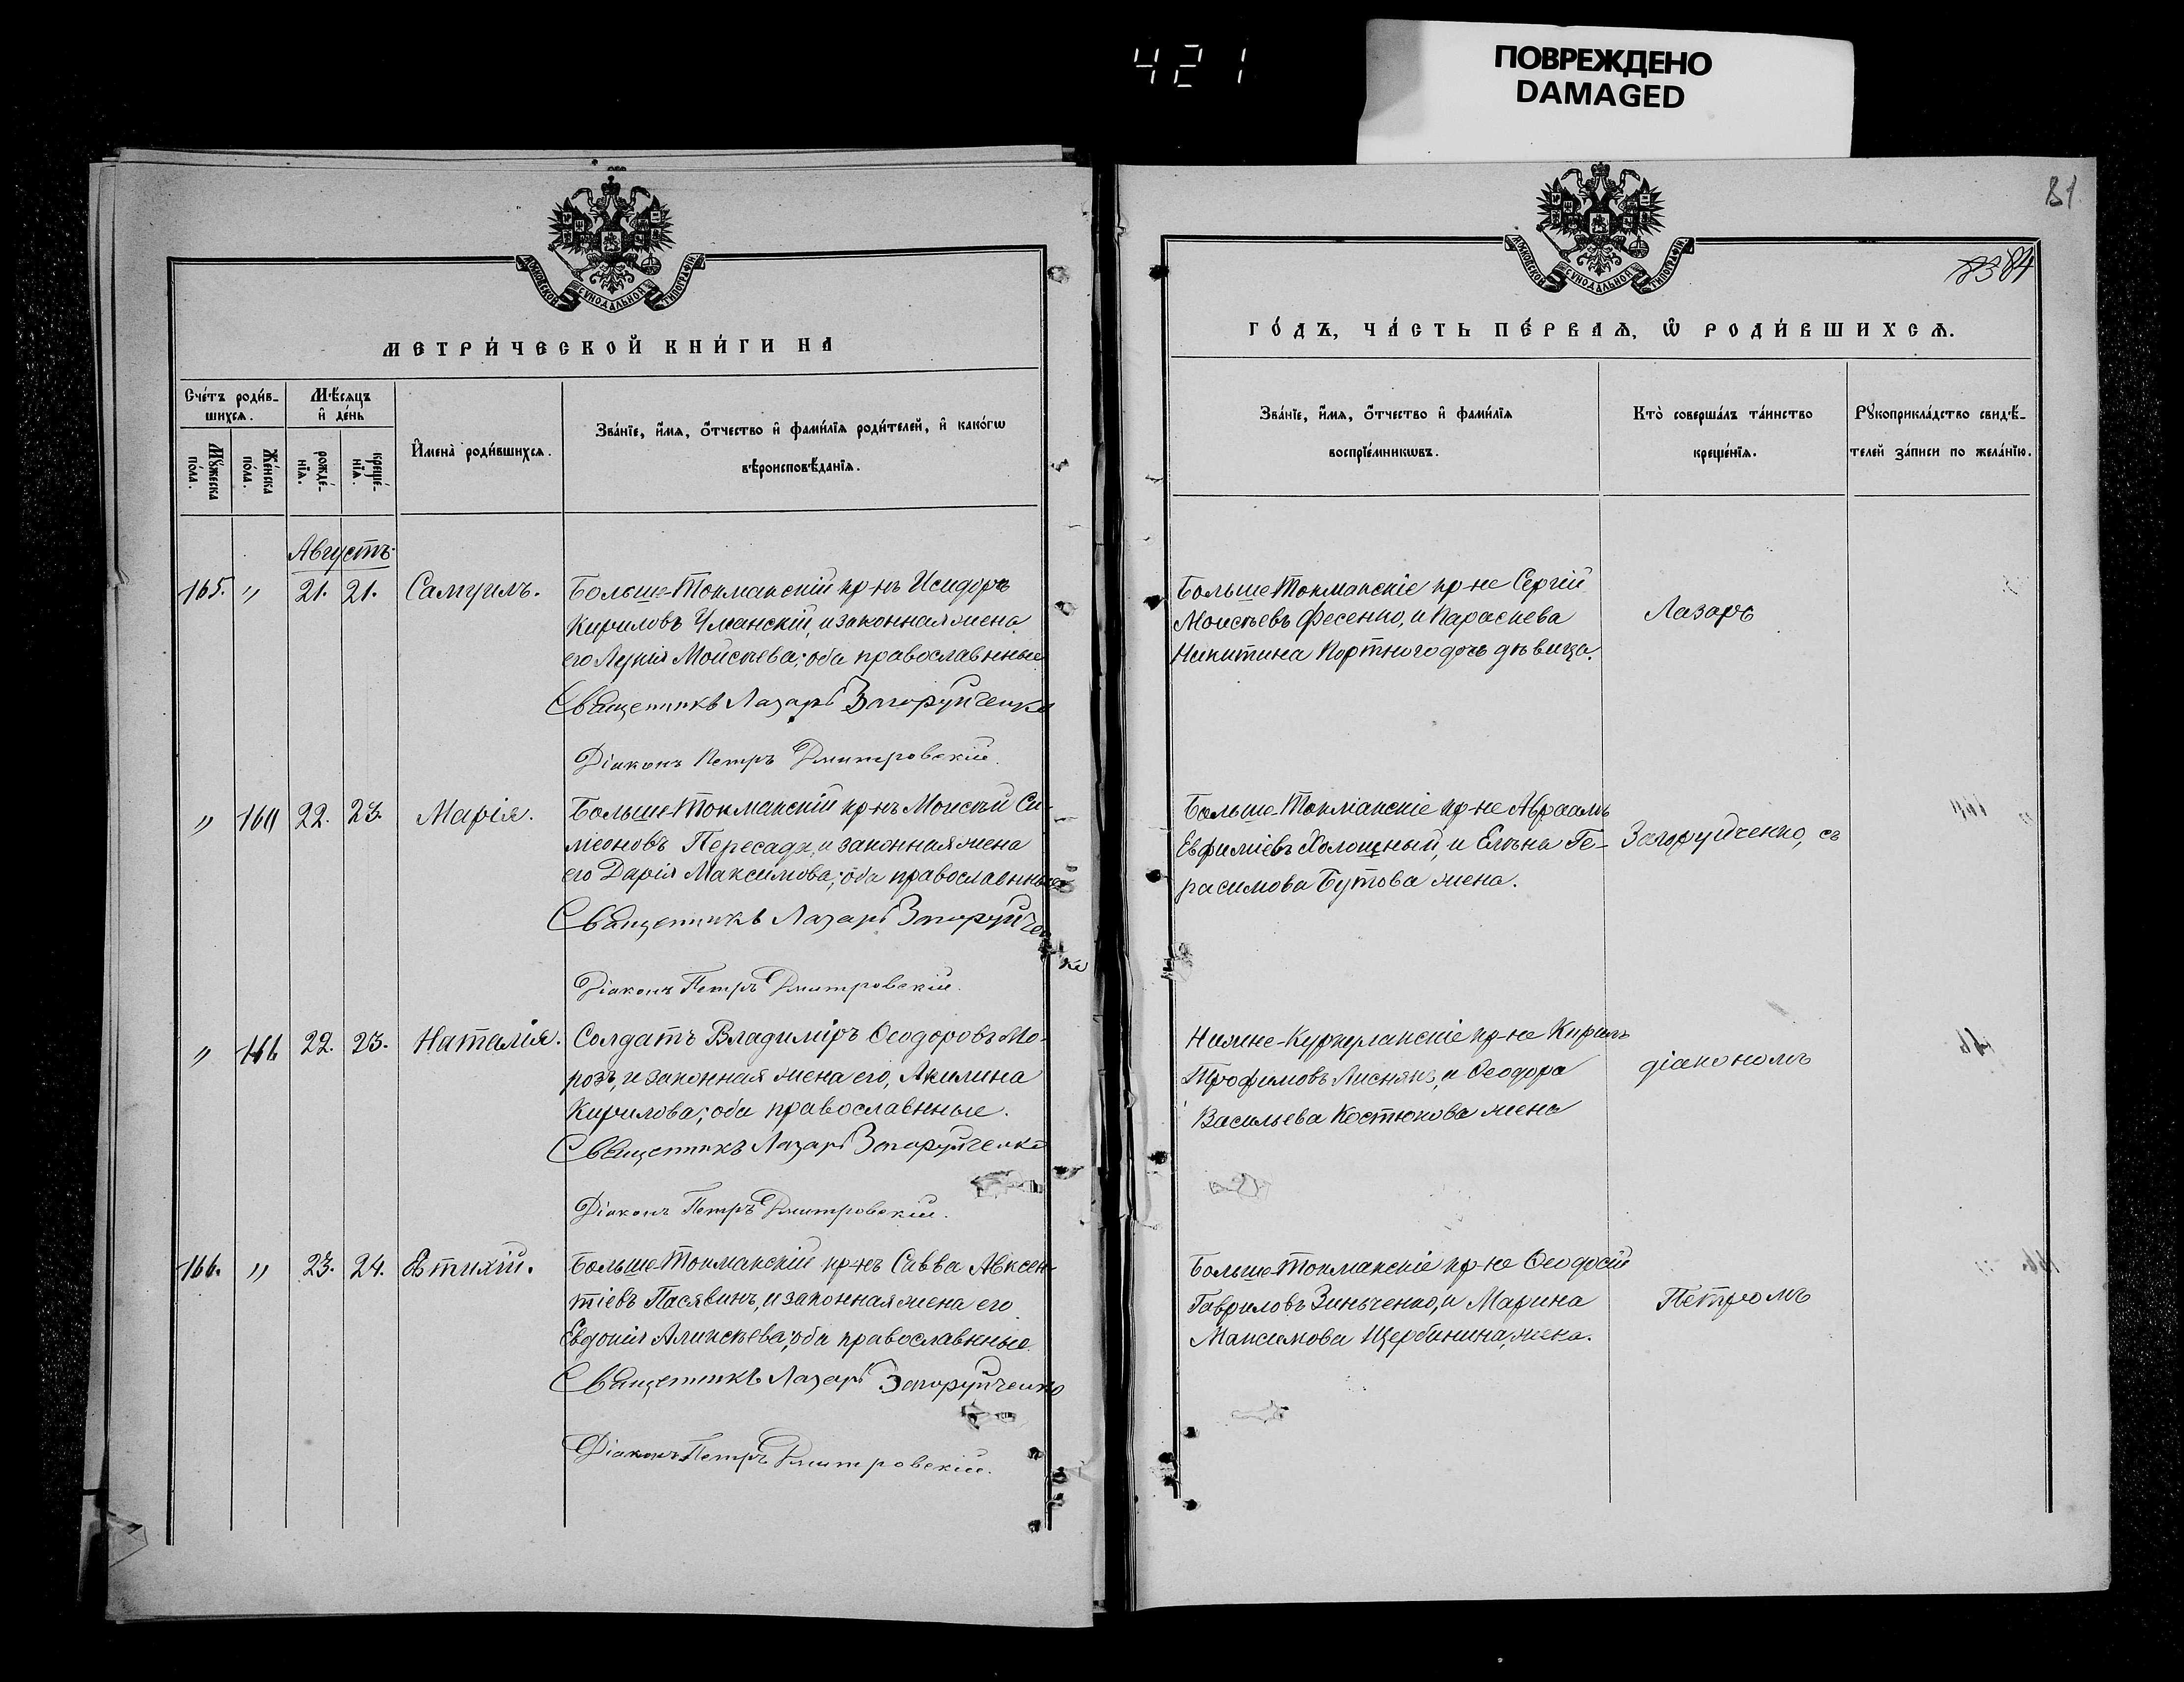 421
ПОВРЕЖДЕНО
DAMAGED
МОСКОВСКОЙ СѴНОДАЛЬНОЙ ТИПОГРАФІИ
МЕТРИ́ЧЕСКОЙ КНИ́ГИ НА
Сче́тъ роди́в-
шихсѧ.
Мѣ́сяцъ
и҆ де́нь
И҆мена̀ роди́вшихсѧ.
Зва́нїе, и҆́мѧ, ѻ҆́тчество и҆ фами́лїѧ роди́телей, и҆ како́гѡ
вѣроисповѣ́данїѧ.
Мꙋ́жеска
по́ла.
Же́нска
по́ла.
рожде́-
нїѧ.
креще́-
нїѧ.
Августъ
165. " 21. 21. Самуилъ.
Больше-Токмакскій кр-нъ Исидоръ
Кириловъ Уманскій, и законная жена
его Лукія Мойсѣева; оба православные
Священникъ Лазарь Загоруйченко
Діаконъ Петръ Дмитровскій.
" 22. 23. Марія.
Больше-Токмакскій кр-нъ Моисей Си-
меоновъ Пересада, и законная жена
его Дарія Максимова; оба православные
Священникъ Лазарь Загоруйчен
ко
Діаконъ Петръ Дмитровскій.
" 22. 23. Наталія.
Солдатъ Владиміръ Ѳеодоровъ Мо-
розъ, и законная жена его, Акилина
Кирилова; оба православные.
Священникъ Лазарь Загоруйченко
Діаконъ Петръ Дмитровскій.
166. " 23. 24. Евтихій.
Больше-Токмакскій кр-нъ Савва Авксен-
тіевъ Пасявинъ, и законная жена его
Евдокія Аликсѣева; оба православные.
Священникъ Лазарь Загоруйченко
Діаконъ Петръ Дмитровскій.
81
83 84
МОСКОВСКОЙ СѴНОДАЛЬНОЙ ТИПОГРАФІИ
ГО́ДЪ, ЧА́СТЬ ПЕ́РВАѦ, Ѡ҆ РОДИ́ВШИХСѦ.
Зва́нїе, и҆́мѧ, ѻ҆́тчество и҆ фами́лїѧ
воспрїе́мникѡвъ.
Кто̀ соверша́лъ та́инство
креще́нїѧ.
Рꙋкоприкла́дство свидѣ́-
телей за́писи по жела́нїю.
Больше-Токмакскіе кр-не Сергій
Моисѣевъ Фесенко, и Параскева
Никитина Портного дочь дѣвица.
Лазарь
Больше-Токмакскіе кр-не Авраамъ
Евфиміевъ Холошный, и Елѣна Ге-
расимова Бутова жена.
Загоруйченко, съ
Нижне-Куркулакскіе кр-не Кирилъ
Трофимовъ Лисняк, и Ѳеодора
Васильева Костюкова жена
діакономъ
Больше-Токмакскіе кр-не Ѳеодосій
Гавриловъ Зинченко, и Марина
Максимова Щербинина, жена.
Петромъ